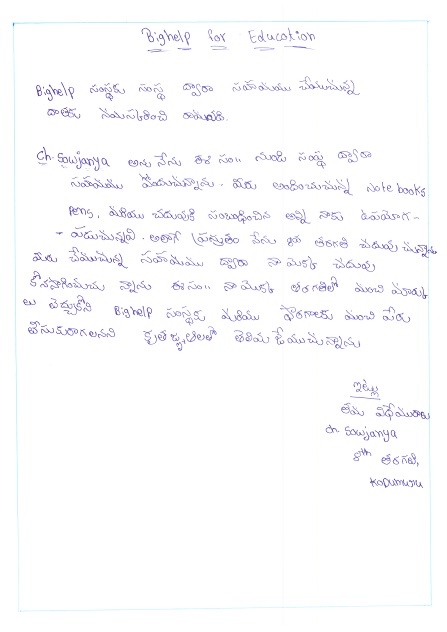 Bighelp for Education
Bighelp సంస్థకు సంస్థ ద్వారా సహాయము చేయుచున్న
దాతకు నమస్కరించి
Ch. Sowjanya అను నేను ఈ సం॥ నుండి సంస్థ ద్వారా
సహాయము పొందుచున్నాను. మీరు అందించుచున్న Note books
Pens, మరియు చదువుకి సంబంధించిన అన్ని నాకు ఉపయోగ-
- పడుచున్నవి. అలాగే ప్రస్తుతం నేను 8వ తరగతి చదువు చున్నాను
మీరు చేయుచున్న సహాయము ద్వారా నా యొక్క చదువు
కొనసాగించుచు న్నాను ఈ సం॥ నా యొక్క తరగతిలో మంచి మార్కు
లు తెచ్చుకొని Bighelp సంస్థకు మరియు మంచి పేరు
తీసుకురాగలనని కృతజ్ఞతలతో తెలియ జేయుచున్నాను
ఇట్లు
తమ విధేయురాలు
ch. Sowjanya
8th తరగతి,
Kodumuru